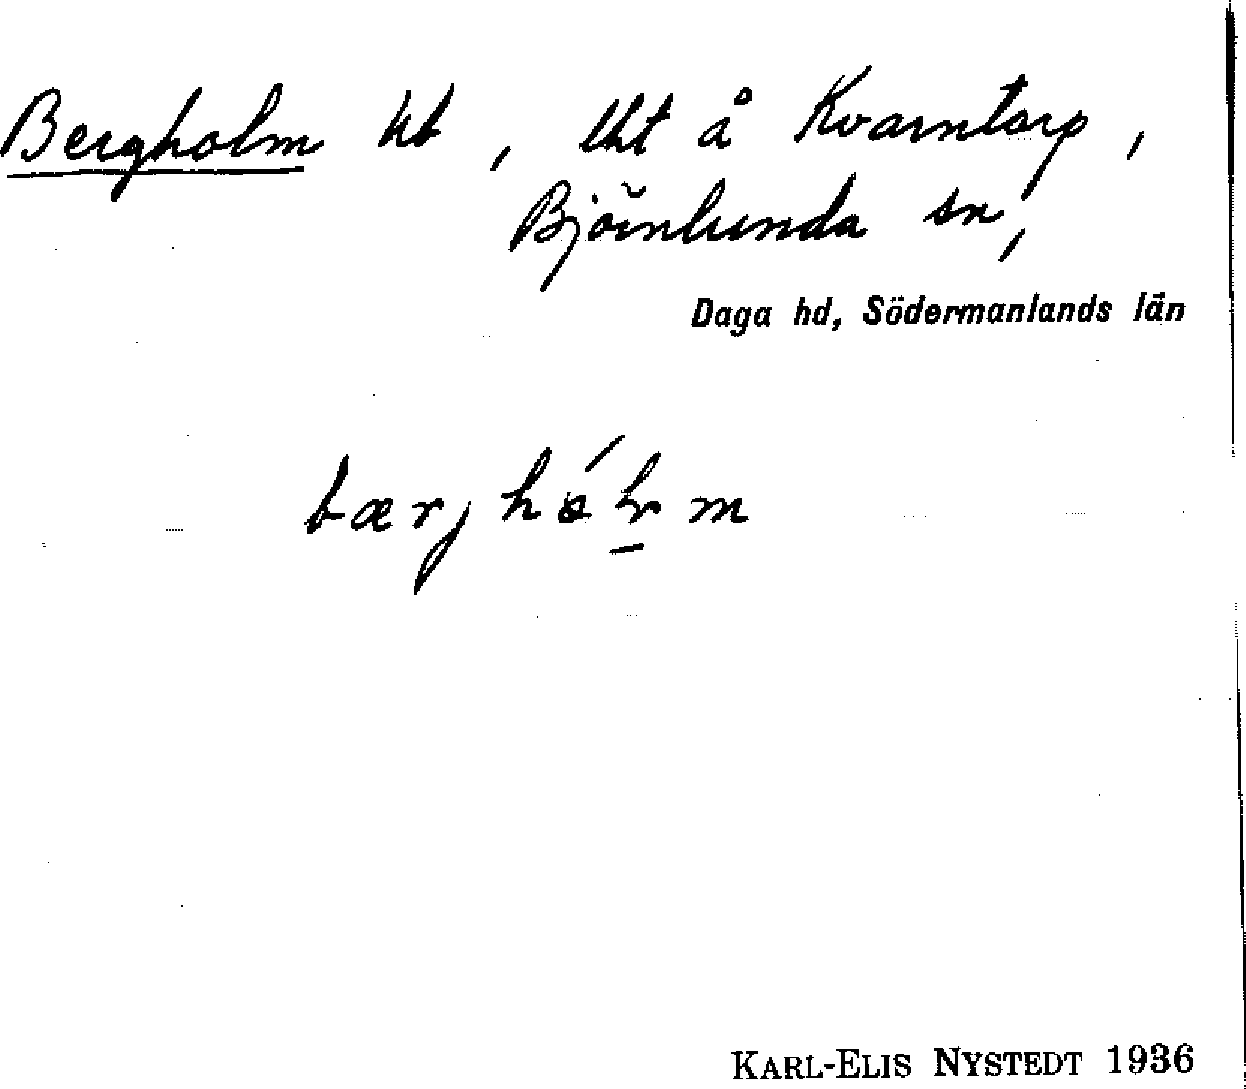 Bergholm ht, lht å Kvarntorp,
Björnlunda sn,
Daga hd, Södermanlands län
bærjhólm
KARL-ELIS NYSTEDT 1936